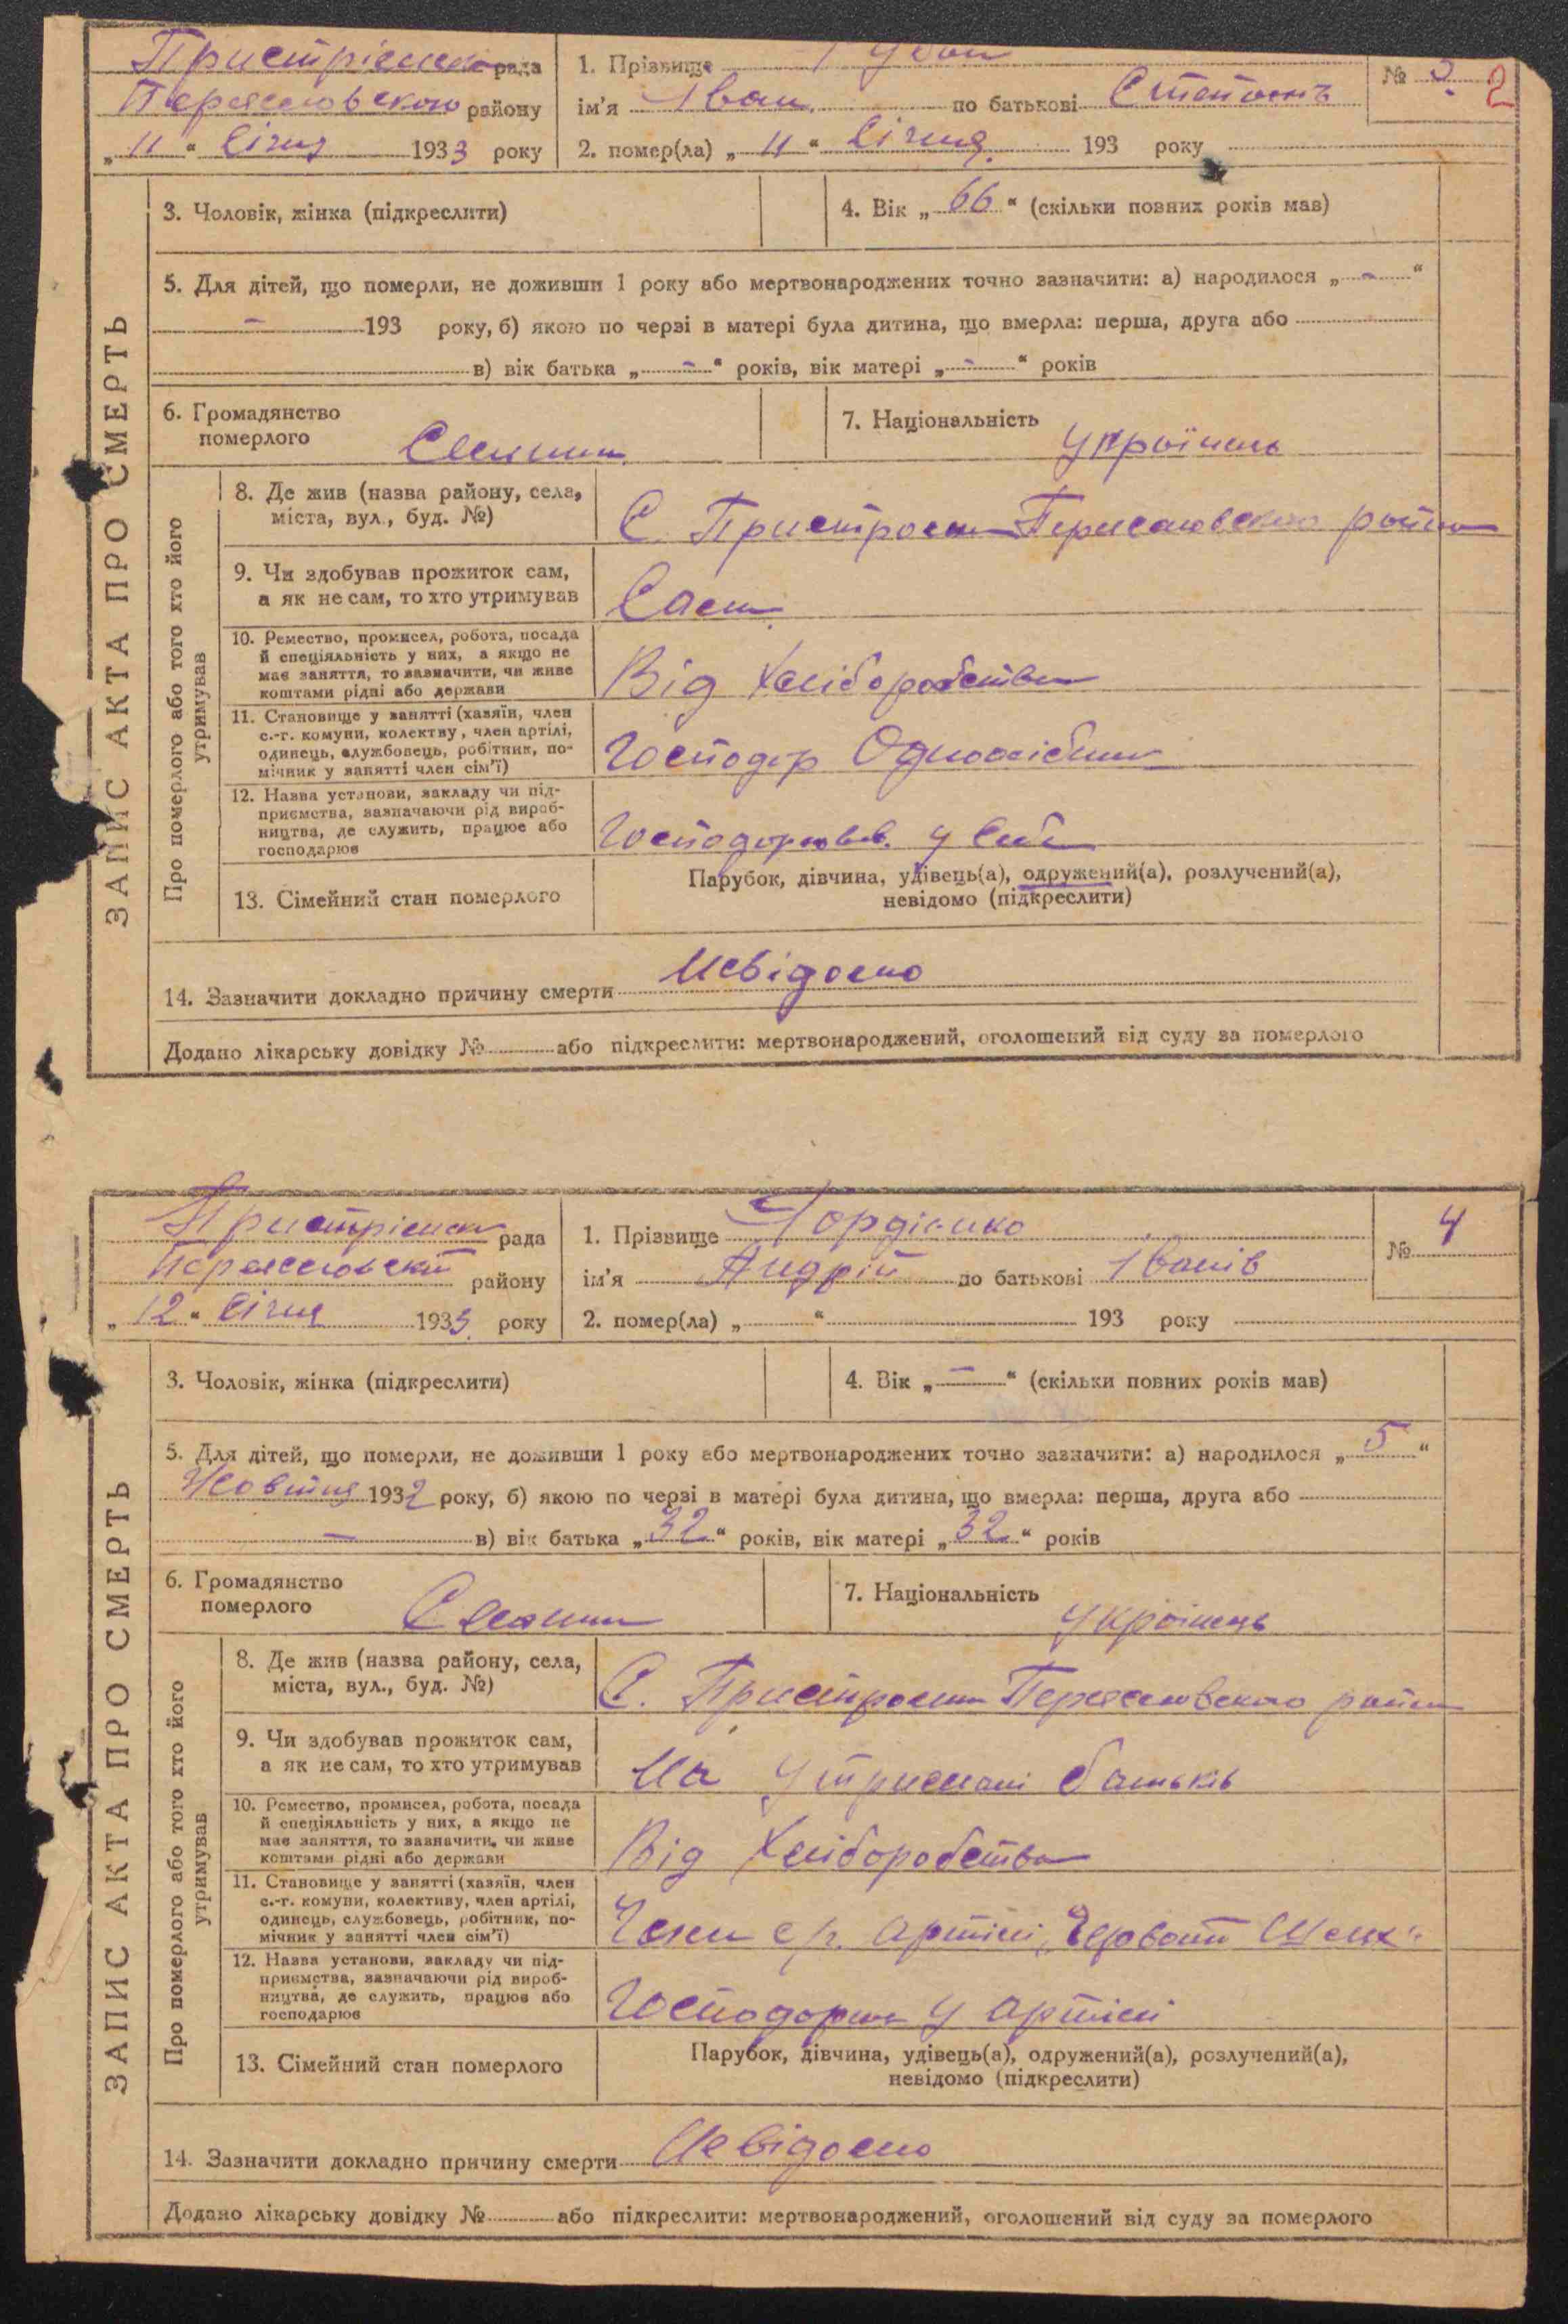 Пристрімська рада
Переяславського району
„ 11 “ Січня 1933 року
1. Прізвище
ім’я Іван по батькові Степанъ
2. помер(ла) „ 11 “ Січня. 193 року
№ 3. 2
ЗАПИС АКТА ПРО СМЕРТЬ
3. Чоловік, жінка (підкреслити)
4. Вік „ 66 “ (скільки повних років мав)
5. Для дітей, що померли, не доживши 1 року або мертвонароджених точно зазначити: а) народилося „ - “
- 193 року, б) якою по черзі в матері була дитина, що вмерла: перша, друга або
в) вік батька „ - “ років, вік матері „ - “ років
6. Громадянство
померлого
7. Національність Українець
Про померлого або того хто його
утримував
8. Де жив (назва району, села,
міста, вул., буд. №)
С. Пристроми Переяславського району
9. Чи здобував прожиток сам,
а як не сам, то хто утримував
Сам.
10. Ремество, промисел, робота, посада
й спеціяльність у них, а якщо не
має заняття, то зазначити, чи живе
коштами рідні або держави
Від Хліборобства
11. Становище у занятті (хазяїн, член
с.-г. комуни, колектву, член артілі,
одинець, службовець, робітник, по-
мічник у занятті член сім’ї)
Господар Одноосібник
12. Назва установи, закладу чи під-
приємства, зазначаючи рід вироб-
ництва, де служить, працює або
господарює
Господарював. у Себе
13. Сімейний стан померлого
Парубок, дівчина, удівець(а), одружений(а), розлучений(а),
невідомо (підкреслити)
14. Зазначити докладно причину смерти Невідомо
Додано лікарську довідку № або підкреслити: мертвонароджений, оголошений від суду за померлого
Пристрімська рада
Переяславській району
„ 12 “ Січня 1933. року
1. Прізвище Гордієнко
ім’я Андрій по батькові Іванів
2. помер(ла) „ “ 193 року
№ 4
ЗАПИС АКТА ПРО СМЕРТЬ
3. Чоловік, жінка (підкреслити)
4. Вік „ — “ (скільки повних років мав)
5. Для дітей, що померли, не доживши 1 року або мертвонароджених точно зазначити: а) народилося „ 5 “
Жовтня 1932 року, б) якою по черзі в матері була дитина, що вмерла: перша, друга або
— в) вік батька „ 32 “ років, вік матері „ 32 “ років
6. Громадянство
померлого
7. Національність Українець
Про померлого або того хто його
утримував
8. Де жив (назва району, села,
міста, вул., буд. №)
С. Пристроми Переяславського району
9. Чи здобував прожиток сам,
а як не сам, то хто утримував
На утримані батьків
10. Ремество, промисел, робота, посада
й спеціяльність у них, а якщо не
має заняття, то зазначити, чи живе
коштами рідні або держави
Від Хліборобства
11. Становище у занятті (хазяїн, член
с.-г. комуни, колективу, член артілі,
одинець, службовець, робітник, по-
мічник у занятті член сім’ї)
Член с/г. артілі „Червоний Шлях“
12. Назва установи, закладу чи під-
приємства, зазначаючи рід вироб-
ництва, де служить, працює або
господарює
Господарює у артілі
13. Сімейний стан померлого
Парубок, дівчина, удівець(а), одружений(а), розлучений(а),
невідомо (підкреслити)
14. Зазначити докладно причину смерти Невідомо
Додано лікарську довідку № або підкреслити: мертвонароджений, оголошений від суду за померлого